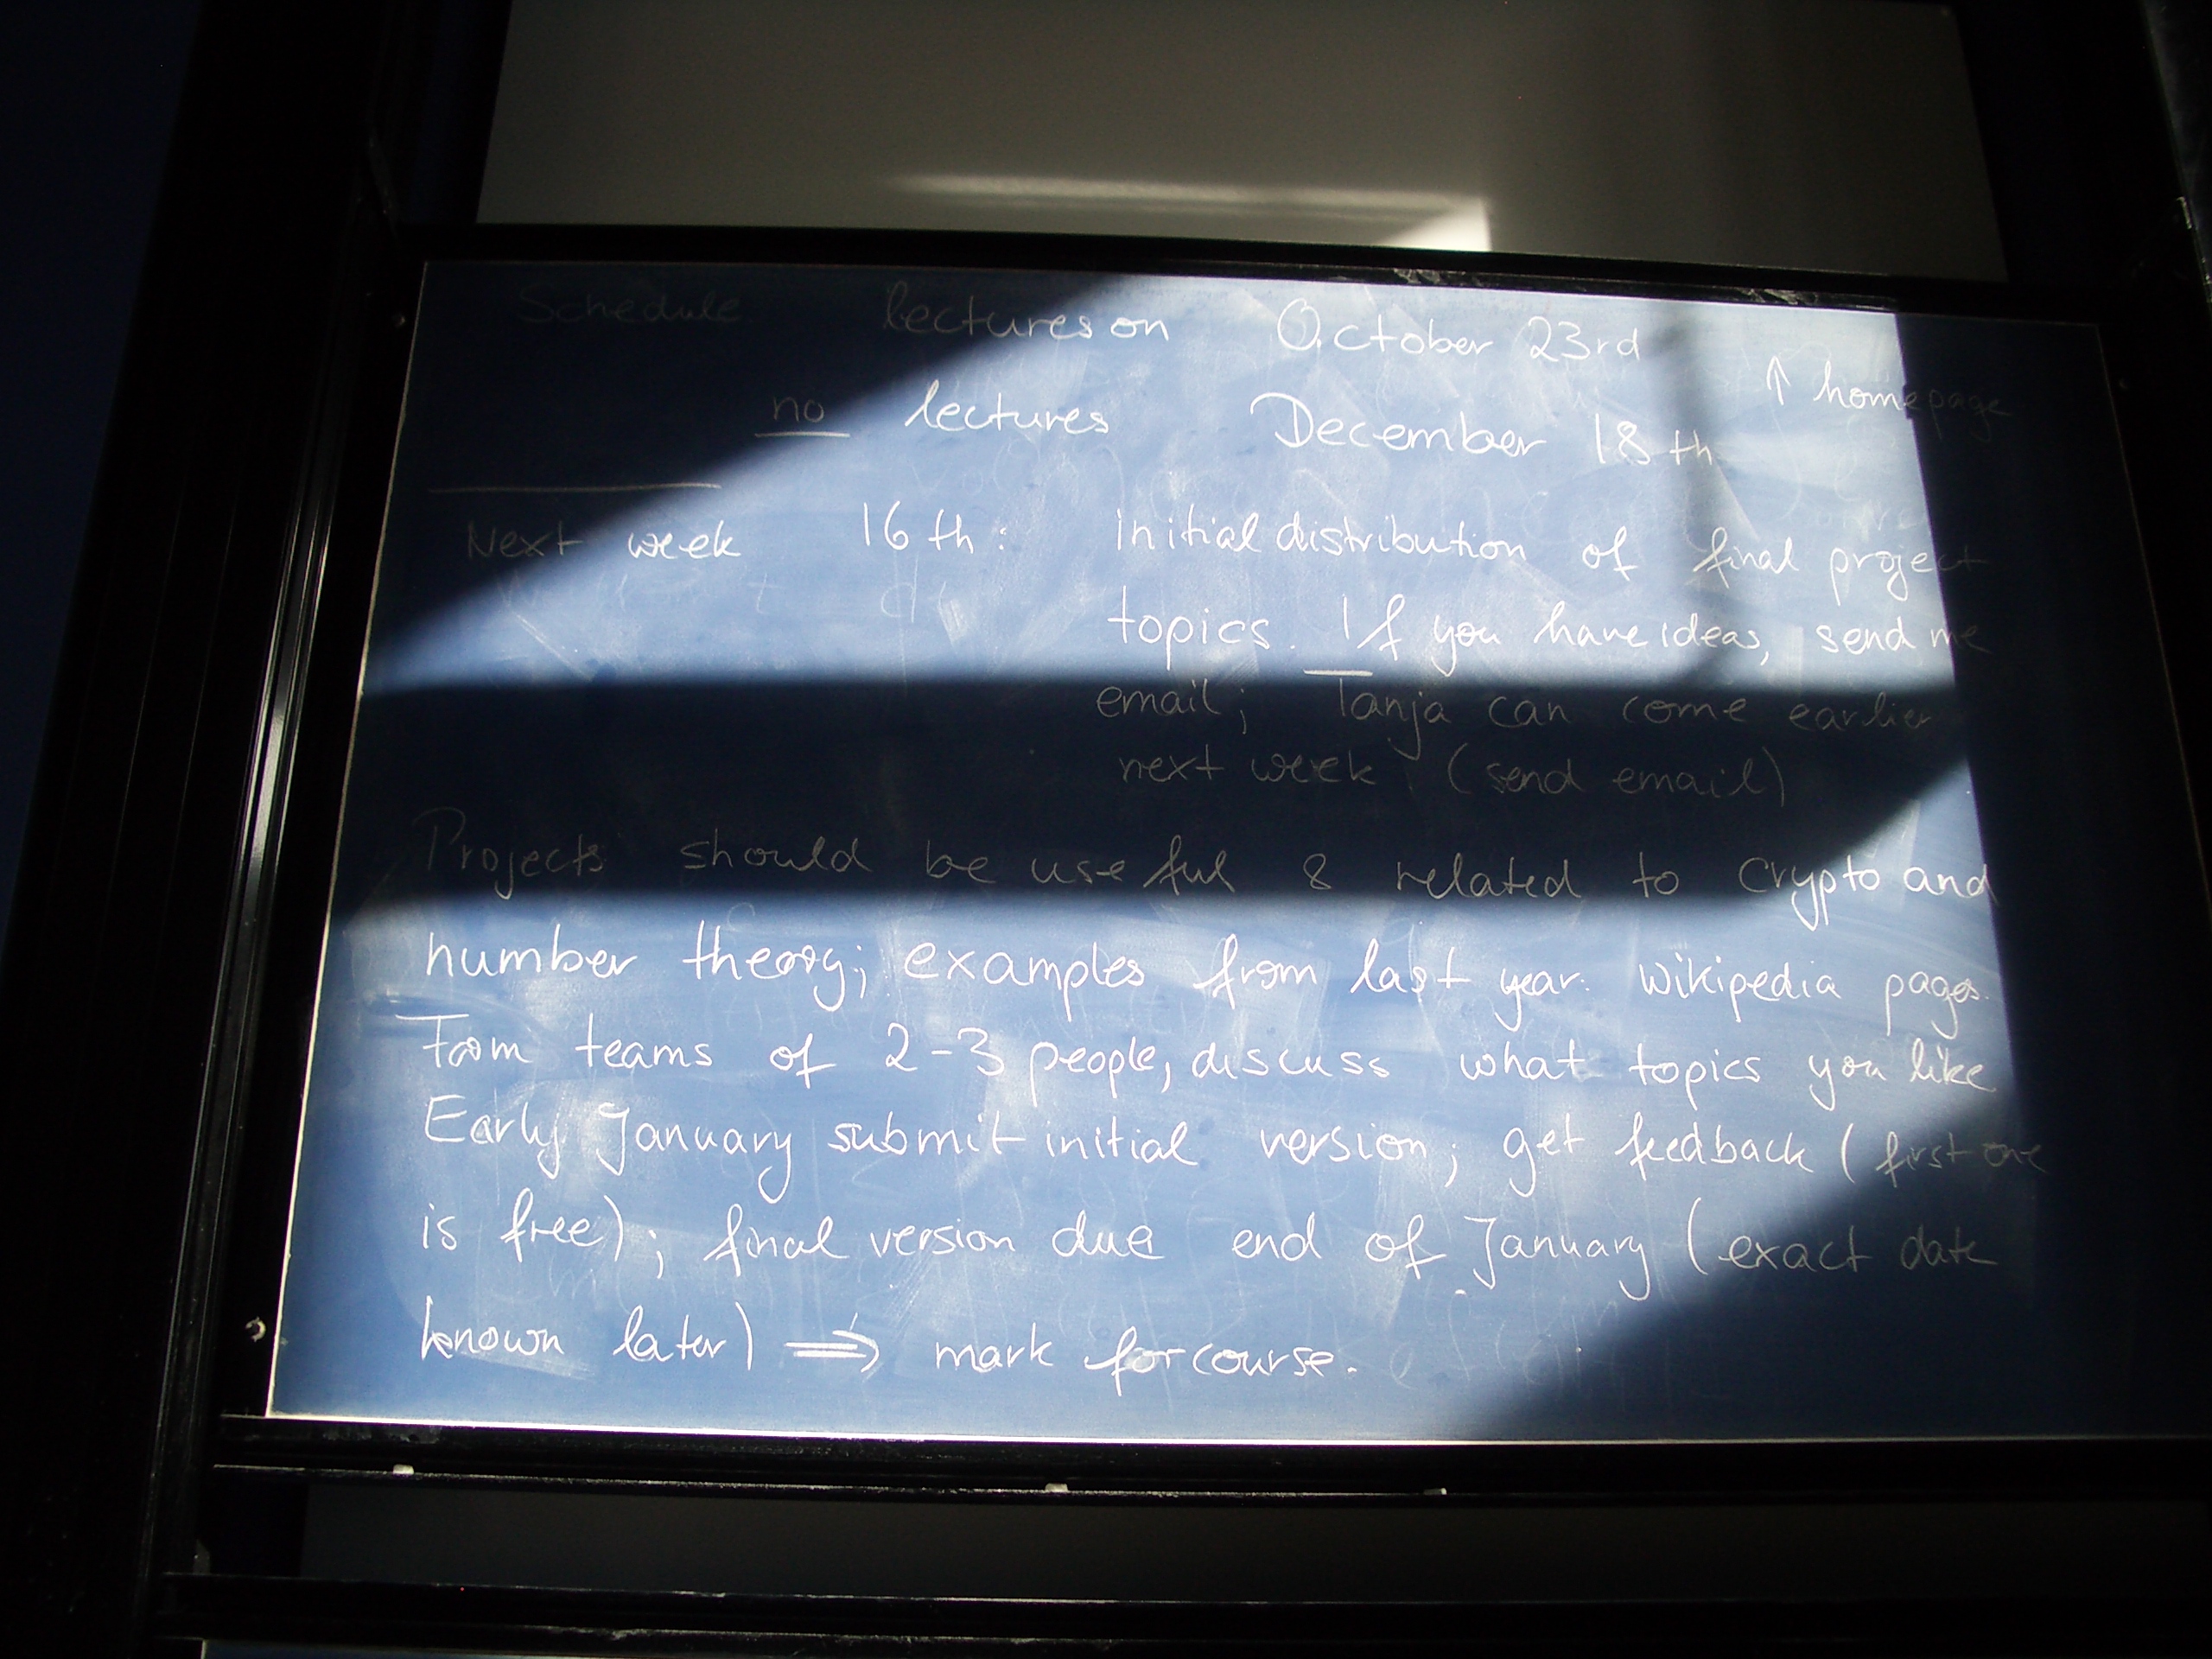 Schedule lectures on October 23rd
↑ homepage
no lectures December 18th
Next week 16th: initial distribution of final project
topics. If you have ideas, send me
email; Tanja can come earlier
next week (send email)
Projects should be useful & related to crypto and
number theory; examples from last year: Wikipedia pages.
Form teams of 2-3 people, discuss what topics you like
Early January submit initial version; get feedback (first one
is free); final version due end of January (exact date
known later) ⇒ mark for course.